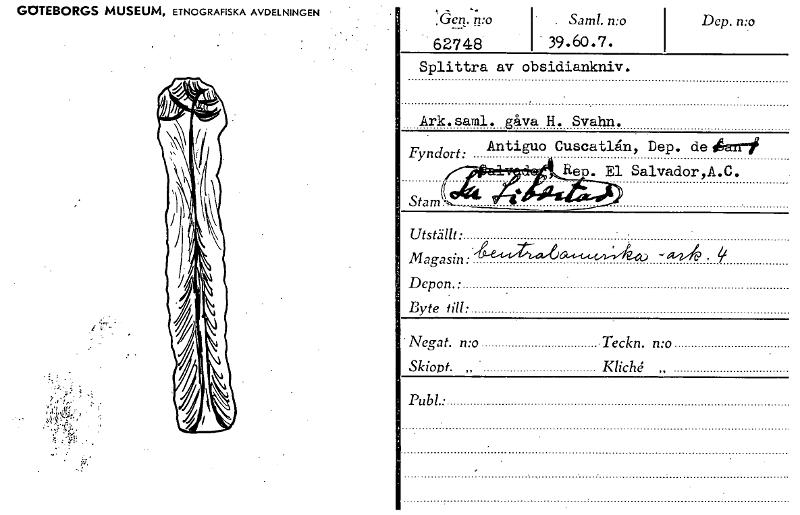 GÖTEBORGS MUSEUM, ETNOGRAFISKA AVDELNINGEN
Gen. n:o Saml. n:o Dep. n:o
62748 39.60.7.
Splittra av obsidiankniv.
Ark.saml. gåva H. Svahn.
Fyndort: Antiguo Cuscatlán, Dep. de San
Salvador, Rep. El Salvador,A.C.
Stam: La Libertad
Utställt:
Magasin: Centralamerika - ark. 4
Depon.:
Byte till:
Negat. n:o Teckn. n:o
Skiopt. „ Kliché „
Publ.: